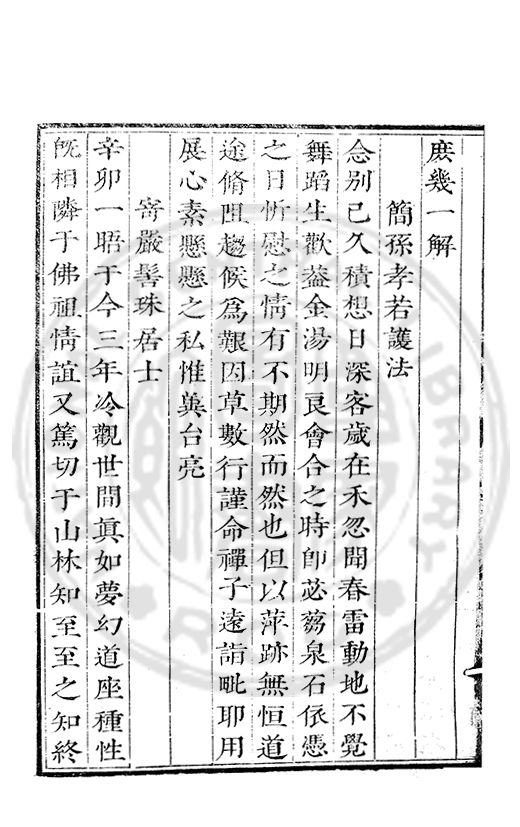 庶幾一解
簡孫孝若護法
念別已久積想日深客歲在禾忽聞春雷動地不覺
舞蹈生歡葢金湯明良會合之時卽苾蒭泉石依憑
之日忻慰之情有不期然而然也但以萍跡無恒道
途脩阻趨候爲艱因草數行謹命禪子遠詣毗耶用
展心素懸懸之私惟兾台亮
寄嚴髻珠居士
辛卯一晤于今三年冷觀世間眞如夢幻道座種性
旣相隣于佛祖情誼又篤切于山林知至至之知終